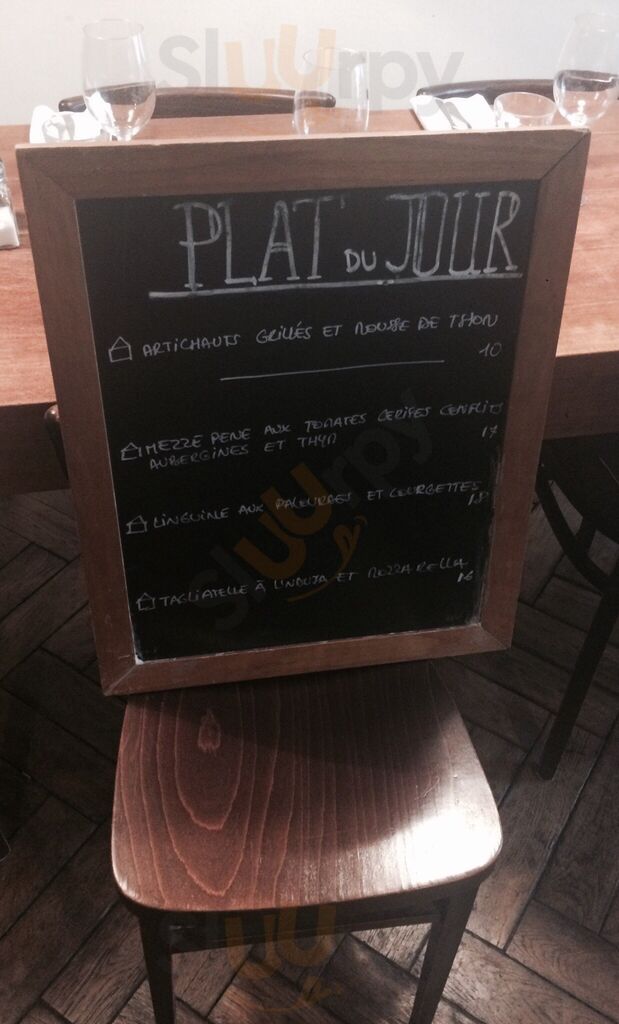 Sluurpy
PLAT DU JOUR
ARTICHAUTS GRILLÉS ET MOUSSE DE THON
10
MEZZE PENE AUX TOMATES CERISES CONFLITS
17
AUBERGINES ET THYM
LINGUINE AUX PALOURDES ET COURGETTES
18
TAGLIATELLE À L'NDUJA ET MOZZARELLA
16
sluurpy